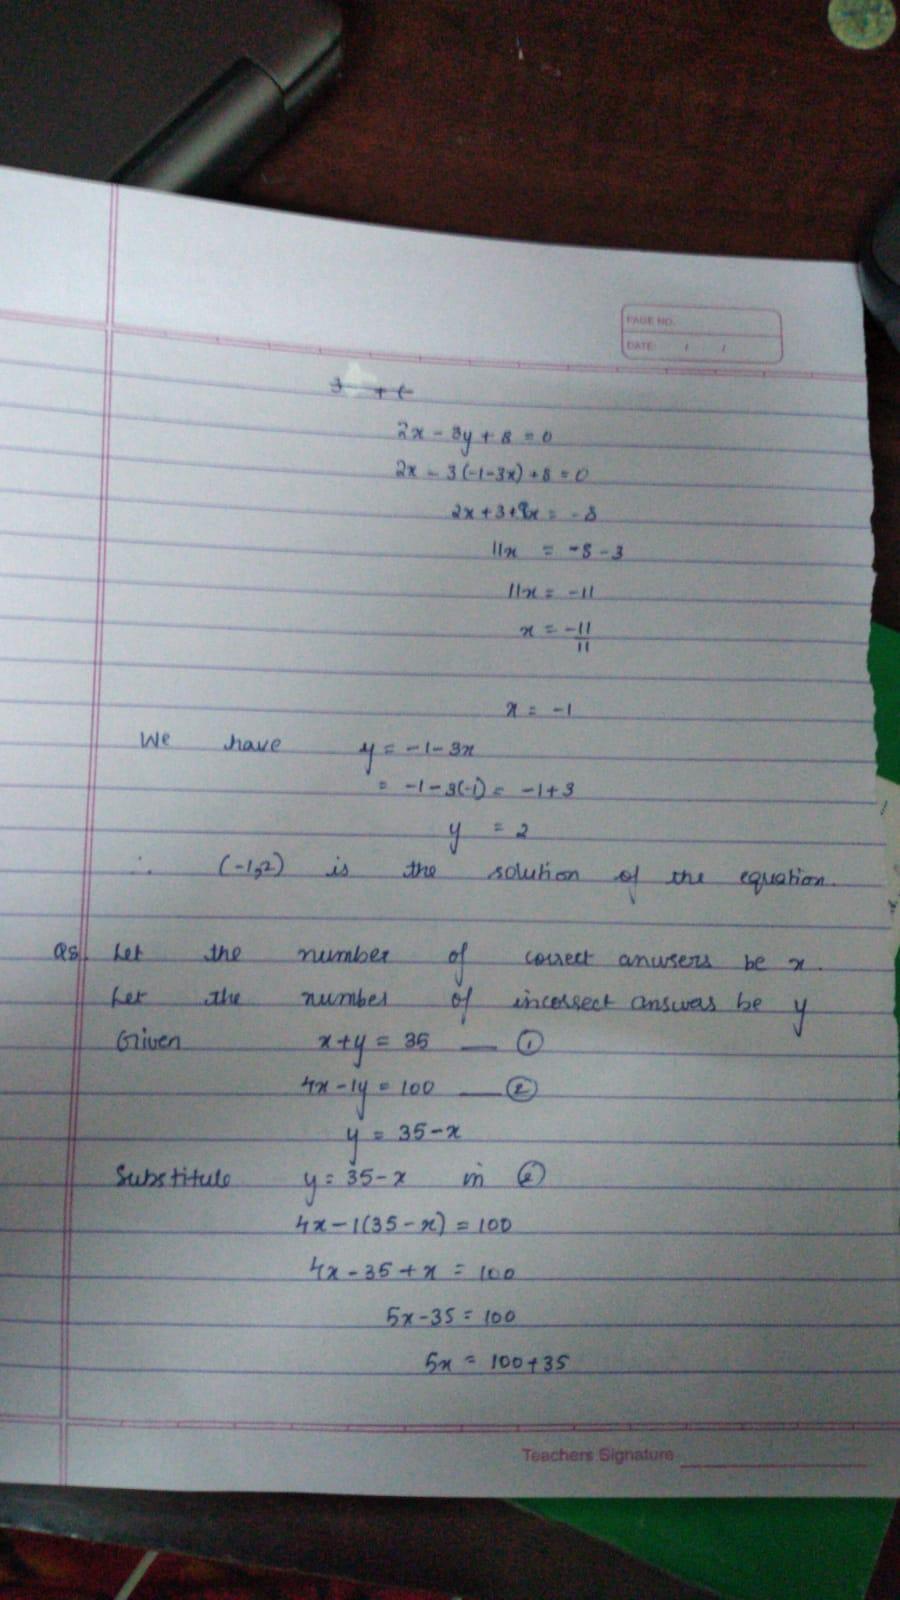 PAGE NO.
DATE: / /
2x - 3y + 8 = 0
2x - 3(-1-3x) + 8 = 0
2x + 3 + 9x = -8
11x = -8 - 3
11x = -11
x = -11/11
x = -1
We have y = -1 - 3x
= -1 - 3(-1) = -1 + 3
y = 2
∴ (-1,2) is the solution of the equation.
Let the number of correct anwsers be x.
Let the number of incorrect answers be y
Given x+y = 35 — ①
4x - 1y = 100 — ②
y = 35 - x
Substitute y = 35 - x in ②
4x - 1(35 - x) = 100
4x - 35 + x = 100
5x - 35 = 100
5x = 100 + 35
Teachers Signature